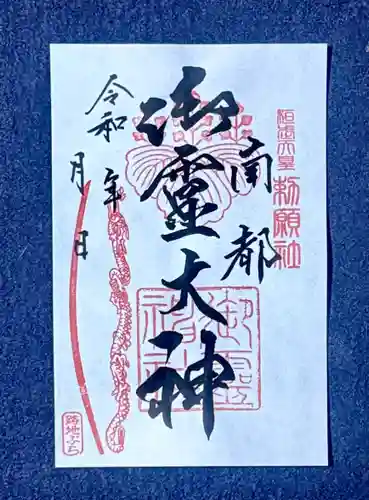 桓武天皇
勅願社
南都
御靈大神
御霊神社
令和 年
月 日